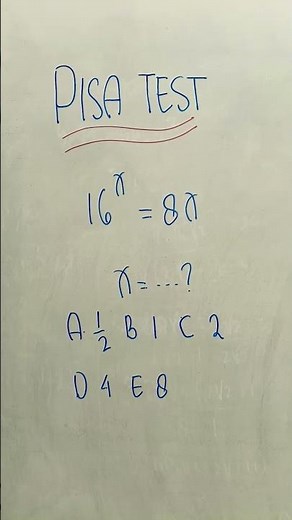 PISA TEST
16^x = 8x
x = ...?
A. 1/2 B 1 C 2
D 4 E 8